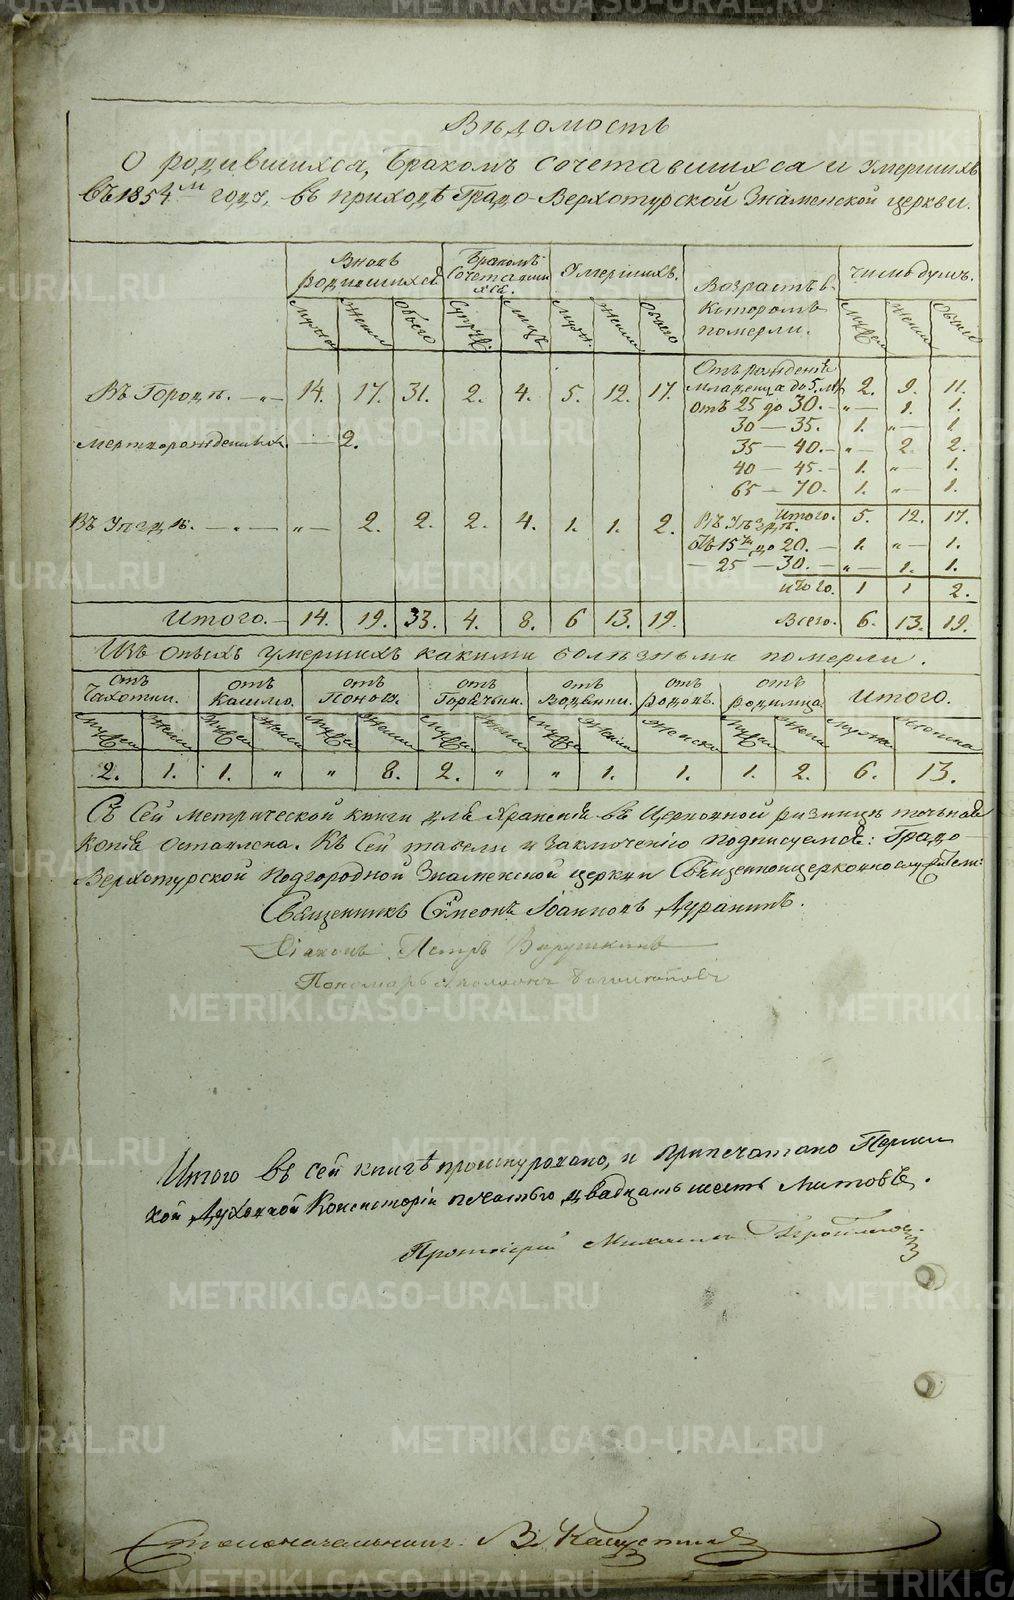 Вѣдомость
О родившихся, бракомъ сочетавшихся и умершихъ
въ 1854м году, въ приходѣ Градо-Верхотурской Знаменской церкви.
Вновь родившихся. Бракомъ сочетавшихся. Умершихъ. Возрастъ въ которомъ померли. Число душъ.
Муж Жен Обоего Супр Лицъ Муж Жен Обоего Муж Жен Обоего
Отъ рожденія
Въ Городѣ. — „ — 14. 17. 31. 2. 4. 5. 12. 17. младенца до 5. 2. 9. 11.
отъ 25 до 30. — „ — 1. 1.
30 — 35. 1. „ — 1
Мертворожденныхъ. — 2. 35 — 40. — „ — 2. 2.
40 — 45. — 1. „ — 1.
65 — 70. 1. „ — 1.
Итого. 5. 12. 17.
Въ Уѣздѣ. — „ — „ — 2. 2. 2. 4. 1. 1. 2. Въ Уѣздѣ.
Отъ 15 до 20. — 1. „ — 1.
— 25 — 30. — „ — 1. 1.
итого. 1 1 2.
Итого. — 14. 19. 33. 4. 8. 6 13. 19. Всего. 6. 13. 19.
Изъ оныхъ умершихъ какими болѣзньми померли.
отъ Чахотки. отъ Кашлю. отъ Поносу. отъ Горячки. отъ Водянки. отъ родовъ. отъ родимца. Итого.
2. 1. 1. „ „ 8. 2. „ „ 1. 1. 1. 2. 6. 13.
Съ сей метрической книги для храненія въ Церковной ризницѣ точная
копія оставлена. Къ сей табели и заключенію подписуемся: Градо-
Верхотурской Подгородной Знаменской церкви Священноцерковнослужители:
Священникъ Симеонъ Іоанновъ Дуранинъ.
Діаконъ Петръ
Пономарь
Итого въ сей книгѣ прошнуровано, и припечатано Пермс
кой Духовной Консисторіи печатью двадцать шесть листовъ.
Протоіерей Михаилъ
Столоначальникъ В.